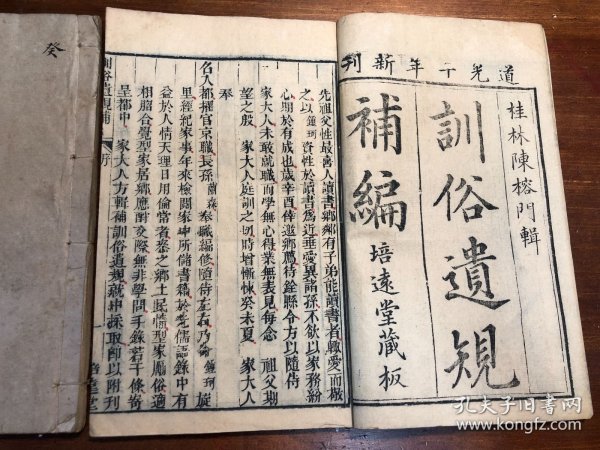 道光十年新刊
桂林陳榕門輯
訓俗遺規
補編
培遠堂藏板
先祖父性最善人讀書鄉鄰有子弟能讀書者輒愛而敬
之以鍾珂資性於讀書為近垂愛異諸孫不欲以家務紛
心期於有成也歲辛酉倖邀鄉薦待銓縣令方以隨侍
家大人未敢就職而學無心得業無表見每念 祖父期
望之殷 家大人庭訓之切時增慚悚癸未夏 家大人
奉
名入都擢官京職長孫蘭森奉職編修隨侍左右乃命鍾珂旋
里經紀家事年來檢閱家中所儲書籍於先儒語錄中有
益於人情天理日用倫常者叅之鄉土民情型家厲俗適
相脗合疊型家居鄉應酬交際無非學問手錄若干條寄
呈都中 家大人方輯補訓俗遺規就中採取卽以附刊
訓俗遺規補 序
癸
孔夫子旧书网
kongfz.com